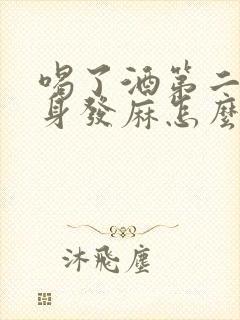 喝了酒第二
身發麻怎麼
沐飛塵